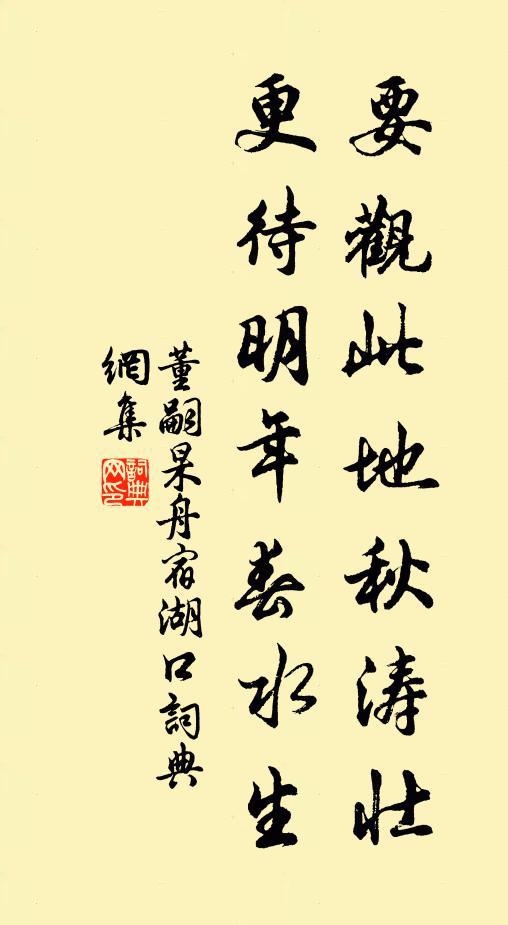 要觀此地秋濤壯
更待明年春水生
董嗣杲舟宿湖口詞典
網集
詞典
网印